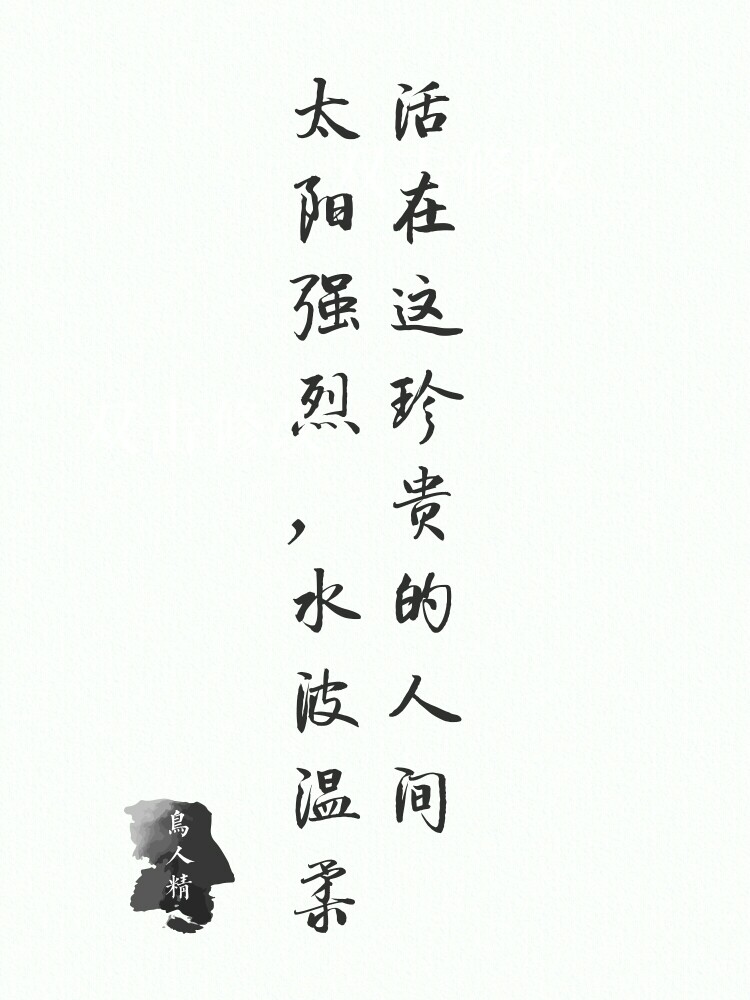 活在这珍贵的人间
太阳强烈，水波温柔
鳥人精